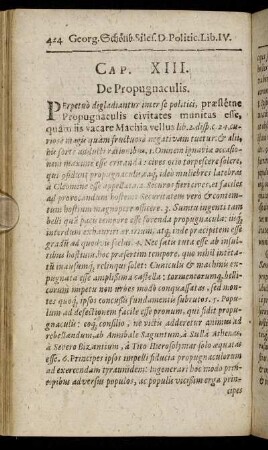 424 Georg. Schönb. Siles. D. Politic. Lib. IV.
CAP. XIII.
De Propugnaculis.
PErpetuò digladiantur inter se politici, præstétne
Propugnaculis civitates munitas esse,
quàm iis vacare Machiavellus lib. 2. disp. c. 24. cu-
riose magis quàm fructuose negativam tuetur: & ali-
bi
1. Omnem ignaviæ occasio-
nem maximè esse : cives otio torpescere solere,
qui fidunt propugnaculis: ideò muliebres latebras
à Cleomene esse appellatas. 2. Securos fieri cives et faciles
ad provocandum hostem: Securitatem verò & contem-
tum hostium magnas peperisse clades. 3. Sumta ingenti tam
belli quàm pacis tempore esse facienda propugnacula: iisq;
interdum exhauriri ærarium, atq; inde præcipitem esse
gradum ad quodvis scelus. 4. Nec satis tuta esse ab insul-
tibus hostium, hoc præsertim tempore, quo nihil inten-
tatum avausumq; relinquat solet: Cuniculis & machinis enu-
gnata esse amplissima castella: tormentorumq; belli-
corum impetu non urbes modò conquassatas, sed mon-
tes quoq; ipsos concussis fundamentis subrutos. 5. Popu-
lum ad defectionem facile esse pronum, qui fidit propu-
gnaculis: eoq; consilio, ne victis adderetur animus ad
rebellandum, ab Annibale Saguntum, à Sulla Athenas
à Severo Bizantium, à Tito Hierosolymas solo æquatas
esse. 6. Principes ipsos impelli fiducia propugnaculorum
ad exercendam tyrannidem: Ingenerari hoc modo prin-
cipibus adversus populos, ac populis vicissim erga prin-
cipes